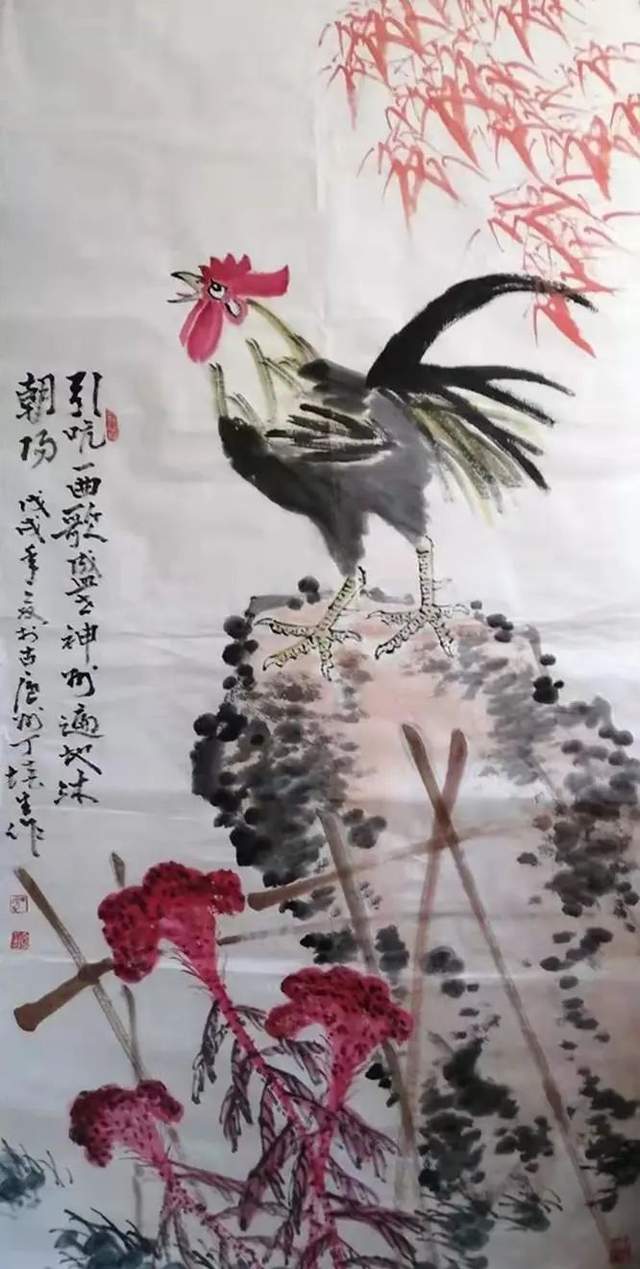 引吭一曲歌盛世神州遍地沐
朝阳 戊戌年夏于古唐州丁培生作